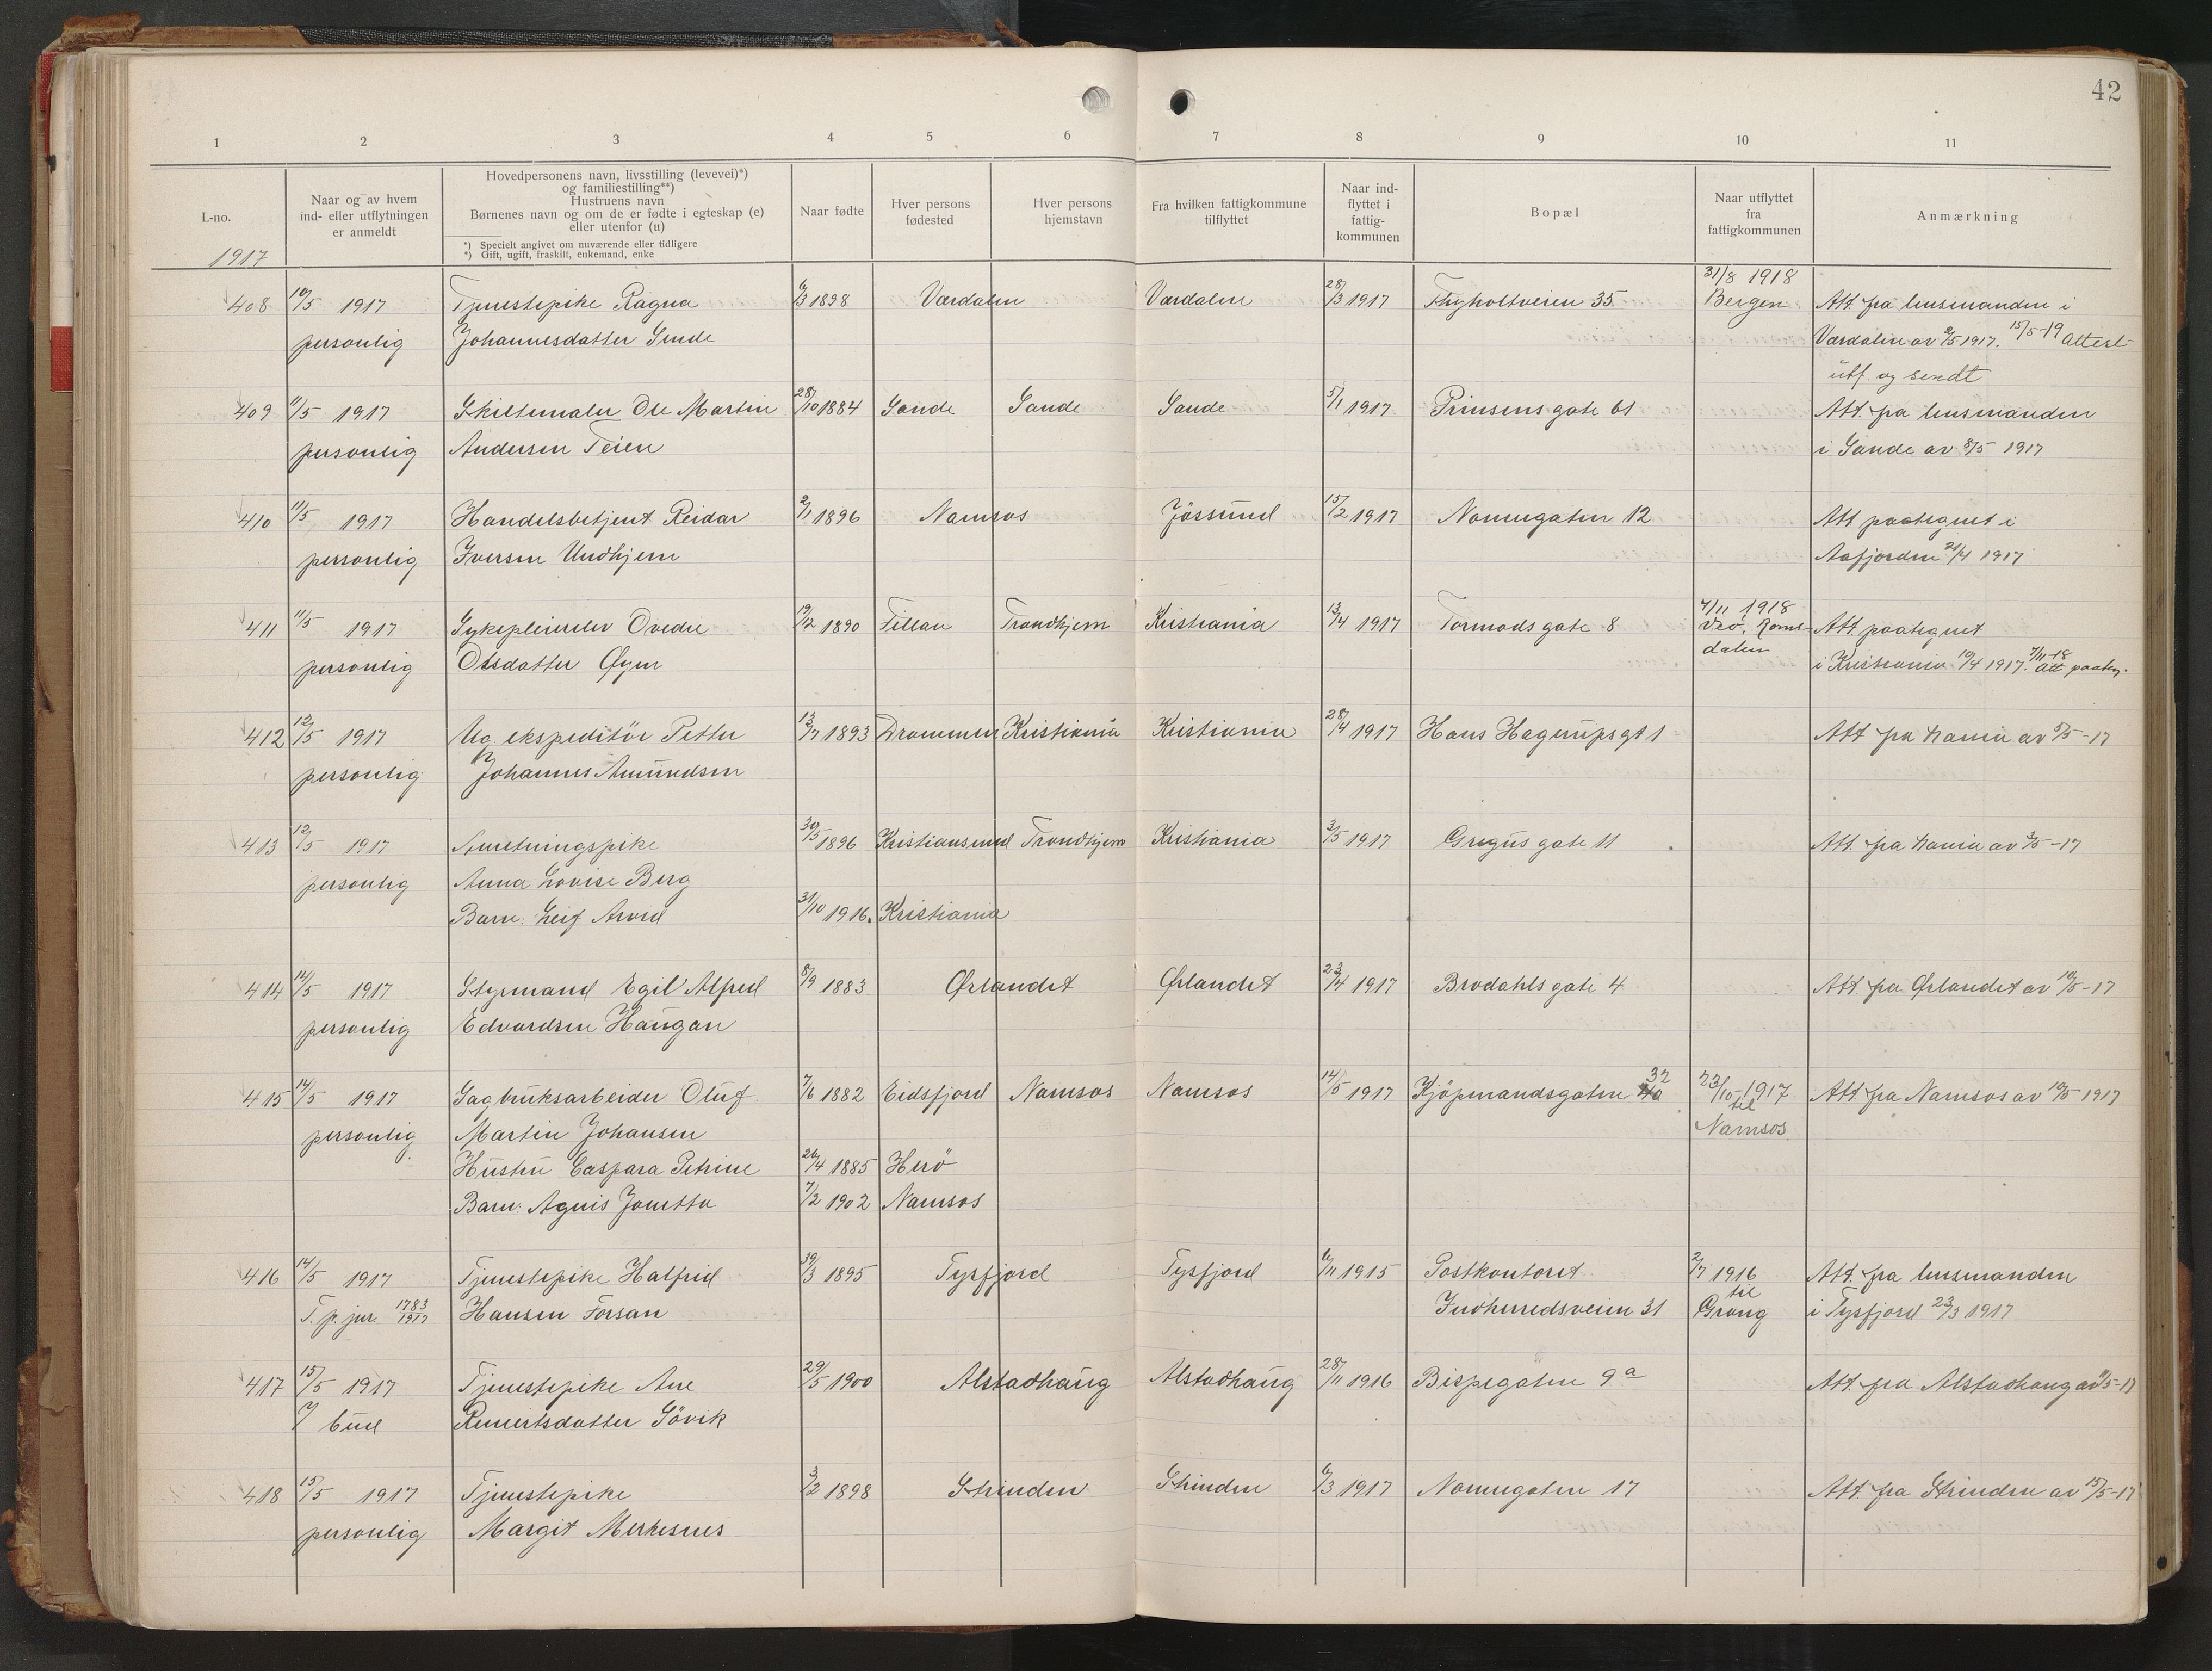 42
1 2 3 4 5 6 7 8 9 10 11
L-no.
1917
Naar og av hvem
ind- eller utflytningen
er anmeldt
Hovedpersonens navn, livsstilling (levevei)*)
og familiestilling**)
Hustruens navn
Børnenes navn og om de er fødte i egteskap (e)
eller utenfor (u)
*) Specielt angivet om nuværende eller tidligere
*) Gift, ugift, fraskilt, enkemand, enke
Naar fødte
Hver persons
fødested
Hver persons
hjemstavn
Fra hvilken fattigkommune
tilflyttet
Naar ind-
flyttet i
fattig-
kommunen
Bopæl
Naar utflyttet
fra
fattigkommunen
Anmærkning
31/8 1918
408 10/5 1917 Tjenestepike Ragna 6/3 1898 Værdalen Værdalen 28/3 1917 Tyholtveien 35 Bergen Att. fra lensmanden i
personlig Johannesdatter Sende Værdalen av 2/5 1917. 15/5-19 Attest
utf og sendt
409 11/5 1917 Skiltemaler Ole Martin 28/10 1884 Sande Sande Sande 5/1 1917 Prinsensgate 61 Att. fra lensmanden
personlig Andersen Teien i Sande av 8/5 1917
410 11/5 1917 Handelsbetjent Reidar 2/1 1896 Namsos Jössund 15/2 1917 Nonnegaten 12 Att paategnet i
personlig Iversen Undhjem Aafjorden 21/4 1917
7/11 1918
411 11/5 1917 Sykepleierelev Ovedie 19/2 1890 Fillan Trondhjem Kristiania 13/4 1917 Tormods gate 8 Veö, Roms- Att. paategnet
dalen
personlig Olsdatter Øyen i Kristiania 10/4 1917. 7/11-18 Att paateg.
412 12/5 1917 Ug. ekspeditör Petter 13/7 1893 Drammen Kristiania Kristiania 28/4 1917 Hans Hagerupsgt 1 Att fra Kania av 5/5-17
personlig Johannes Amundsen
413 12/5 1917 Anretningspike 30/5 1896 Kristiansund Trondhjem Kristiania 3/5 1917 Gregus gate 11 Att. fra Kania av 3/5-17
personlig Anna Lovise Berg
Barn: Leif Arvid 31/10 1916. Kristiania
414 14/5 1917 Styrmand Egil Alfred 8/9 1883 Ørlandet Ørlandet 23/4 1917 Brodahls gate 4 Att. fra Ørlandet av 10/5-17
personlig Edvardsen Haugan
32
415 14/5 1917 Sagbruksarbeider Oluf 7/6 1882 Eidsfjord Namsos Namsos 14/5 1917 Kjöpmandsgaten 40 23/10-1917 Att fra Namsos av 10/5 1917
til
personlig Martin Johansen Namsos
Hustru Caspara Petrine 26/4 1885 Herö
Barn: Agnis Jonetta 7/2 1902 Namsos
416 14/5 1917 Tjenestepike Halfrid 30/3 1895 Tysfjord Tysfjord 6/11 1915 Postkontoret 2/7 1916 Att. fra lensmanden
til
T. p. jur. 1783/1917 Hansen Forsan Indherredsveien 31 Grong i Tysfjord 23/3 1917
417 15/5 1917 Tjenestepike Ane 29/5 1900 Alstadhaug Alstadhaug 28/11 1916 Bispegaten 9a Att. fra Alstadhaug av 11/5-17
bud Reinertsdatter Sövik
418 15/5 1917 Tjenestepike 3/2 1898 Strinden Strinden 6/3 1917 Nonnegaten 17 Att. fra Strinden av 15/5-17
personlig Margit Merkesnes